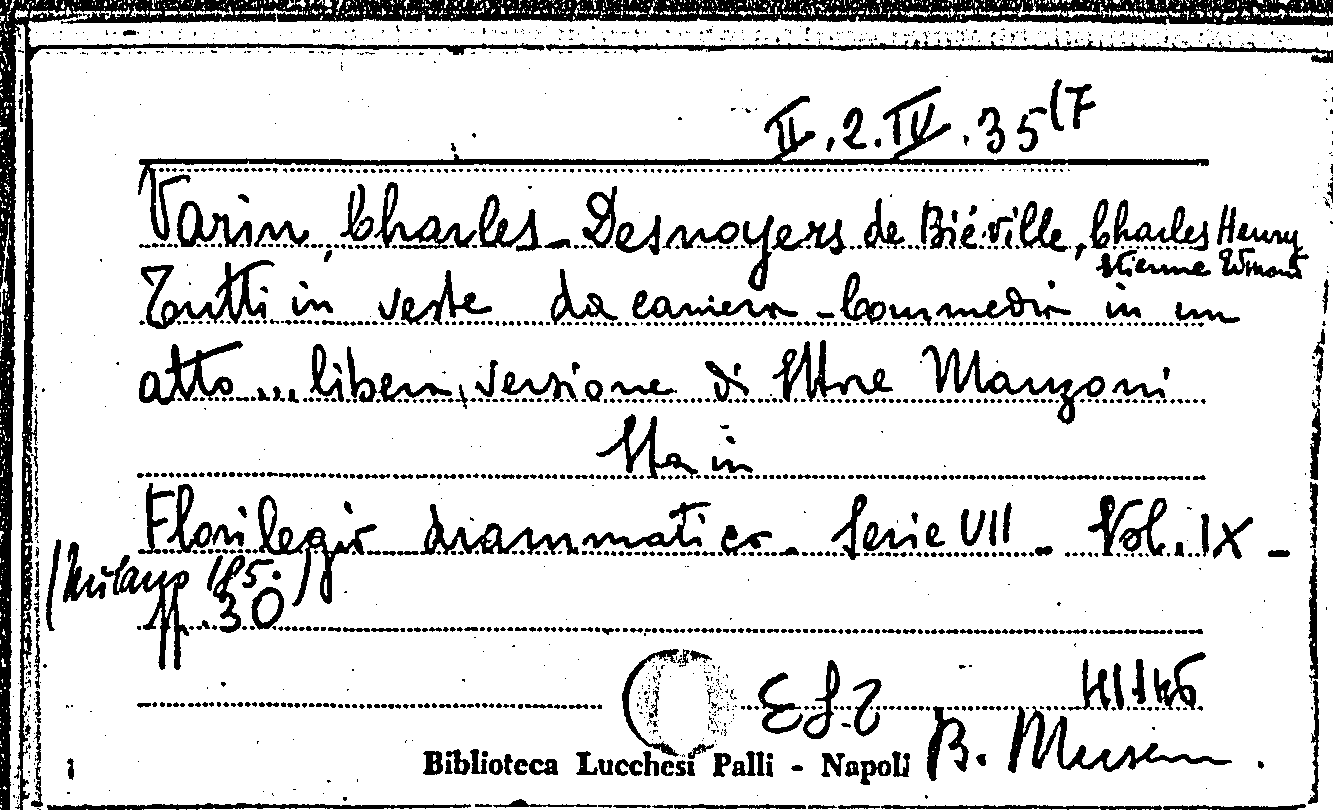 II.2.IV.35(7
Varin, Charles - Desnoyers de Biéville, Charles Henry
Etienne Edmond
Tutti in veste da camera - Commedia in un
atto... libera versione di Ettore Manzoni
Sta in
Florilegio drammatico. Serie VII - Vol. IX -
(Milano 185.)
pp. 30
Biblioteca Lucchesi Palli - Napoli
B.
1